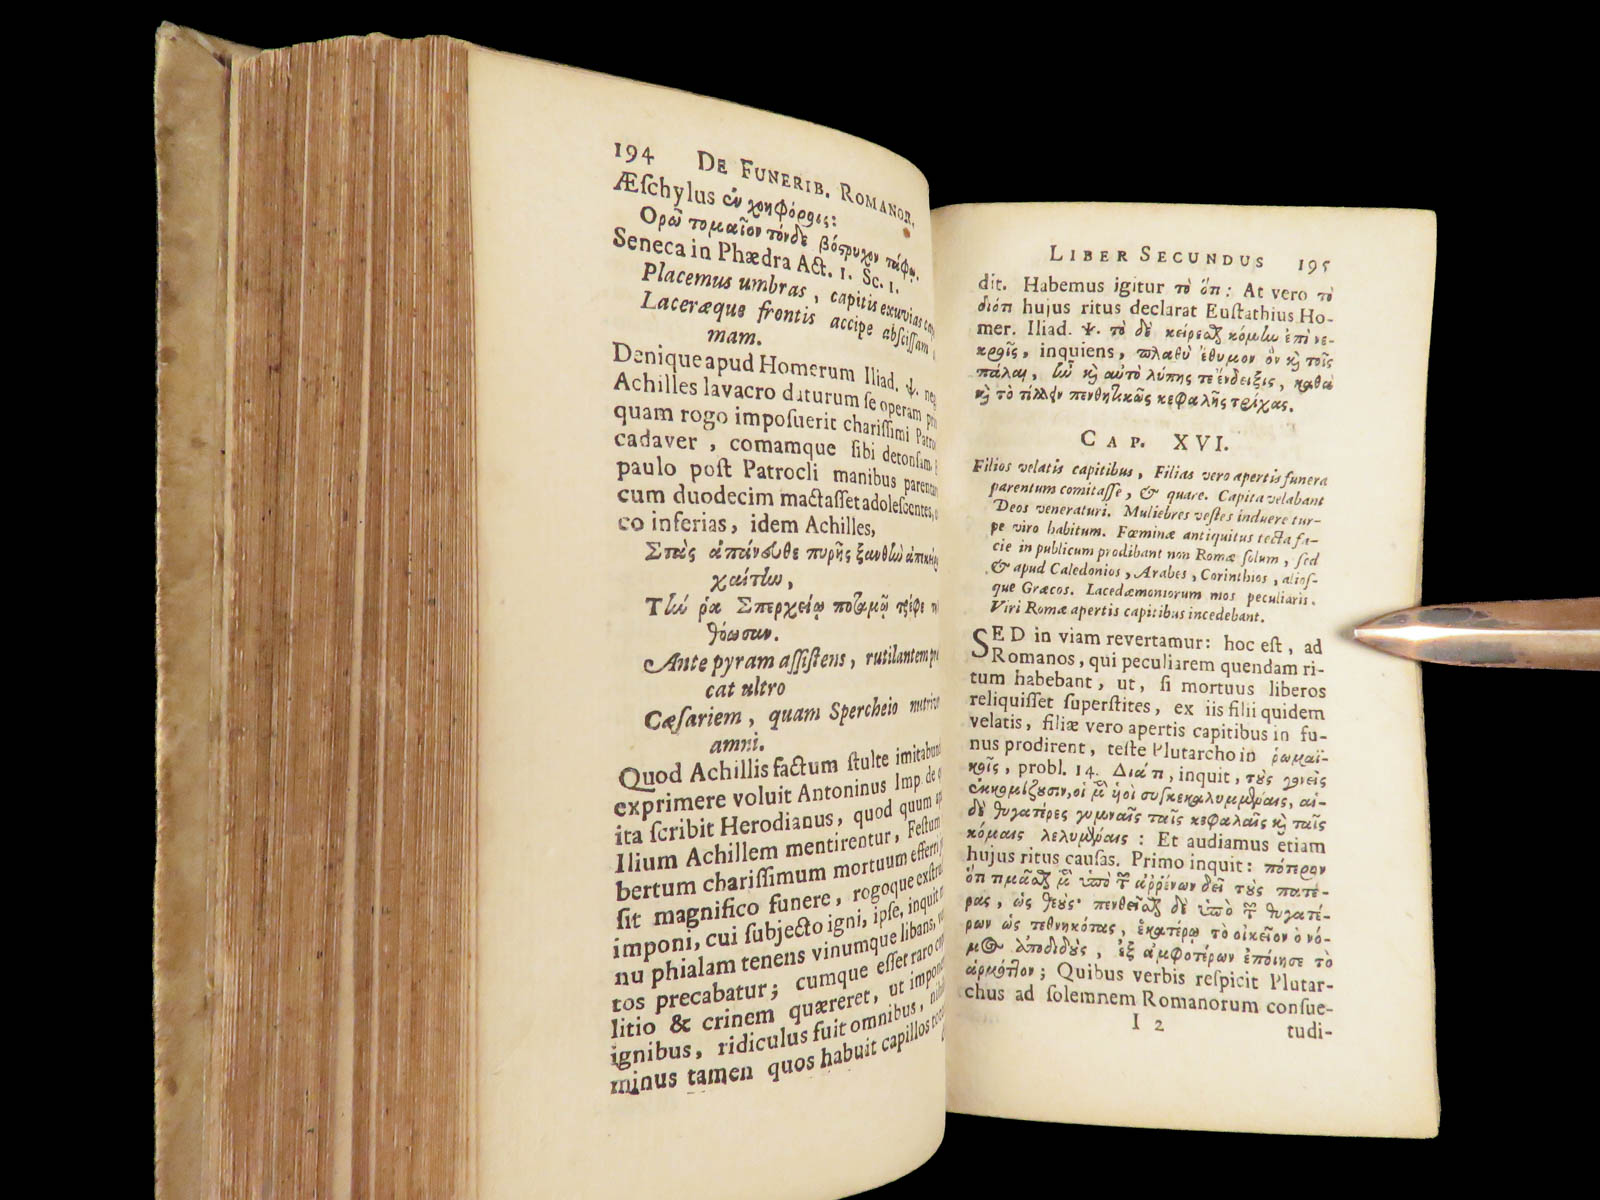 194 DE FUNERIB. ROMANOR.
Æſchylus ἐν χοηφόροις:
Ορῶ τομαῖον τόνδε βόςρυχον τάφῳ.
Seneca in Phædra Act. 1. Sc. 1.
Placemus umbras, capitis exuvias
Laceræque frontis accipe abſciſſam
mam.
Denique apud Homerum Iliad. ψ. neg
Achilles lavacro daturum ſe operam
quam rogo impoſuerit chariſſimi Patro
cadaver, comamque ſibi detonſam,
paulo poſt Patrocli manibus parentar
cum duodecim mactaſſet adoleſcentes,
co inferias, idem Achilles,
Στὰς ἀπάνευθε πυρῆς ξανθὴν
χαίτην,
Τήν ῥα Σπερχείῳ ποταμῷ τρέφε
θόωσαν.
Ante pyram aſſiſtens, rutilantem
cat ultro
Cæſariem, quam Spercheio
amni.
Quod Achillis factum ſtulte imitabund
exprimere voluit Antoninus Imp. de
ita ſcribit Herodianus, quod quum
Ilium Achillem mentirentur, Feſtum
bertum chariſſimum mortuum efferri
ſit magnifico funere, rogoque
imponi, cui ſubjecto igni, ipſe, inquit
nu phialam tenens vinumque libans,
tos precabatur; cumque eſſet raro
litio & crinem quæreret, ut imponer
ignibus, ridiculus fuit omnibus,
minus tamen quos habuit capillos
LIBER SECUNDUS 195
dit. Habemus igitur τὸ ὅτι: At vero τὸ
διότι hujus ritus declarat Euſtathius Ho-
mer. Iliad. Ψ. τὸ δὲ κείρεσθαι κόμην ἐπὶ νε-
κροῖς, inquiens, πλαθὺ ἔθιμον ὂν καὶ τοῖς
πάλαι, ἦν καὶ αὐτὸ λύπης τε ἔνδειξις, καθὰ
καὶ τὸ τίλλειν πενθητικῶς κεφαλῆς τρίχας.
CAP. XVI.
Filios velatis capitibus, Filias vero apertis funera
parentum comitaſſe, & quare. Capita velabant
Deos veneraturi. Muliebres veſtes induere tur-
pe viro habitum. Fœminæ antiquitus tecta fa-
cie in publicum prodibant non Romæ ſolum, ſed
& apud Caledonios, Arabes, Corinthios, alioſ-
que Græcos. Lacedæmoniorum mos peculiaris.
Viri Romæ apertis capitibus incedebant.
SED in viam revertamur: hoc eſt, ad
Romanos, qui peculiarem quendam ri-
tum habebant, ut, ſi mortuus liberos
reliquiſſet ſuperſtites, ex iis filii quidem
velatis, filiæ vero apertis capitibus in fu-
nus prodirent, teſte Plutarcho in ῥωμαϊ-
κοῖς, probl. 14. Διά τι, inquit, τοὺς γονεῖς
ἐκκομίζουσιν, οἱ μὲν ὑοὶ συγκεκαλυμμέναις, αἱ
δὲ θυγατέρες γυμναῖς ταῖς κεφαλαῖς καὶ ταῖς
κόμαις λελυμέναις: Et audiamus etiam
hujus ritus cauſas. Primo inquit: πότερον
ὅτι τιμᾶσθαι μὲν ὑπὸ τῶν ἀῤῥένων δεῖ τοὺς πατέ-
ρας, ὡς θεούς· πενθεῖσθαι δὲ ὑπὸ τῶν θυγατέ-
ρων ὡς τεθνηκότας, ἑκατέρῳ τὸ οἰκεῖον ὁ νό-
μος ἀποδιδοὺς, ἐξ ἀμφοτέρων ἐποίησε τὸ
ἁρμόττον; Quibus verbis reſpicit Plutar-
chus ad ſolemnem Romanorum conſue-
I 2 tudi-